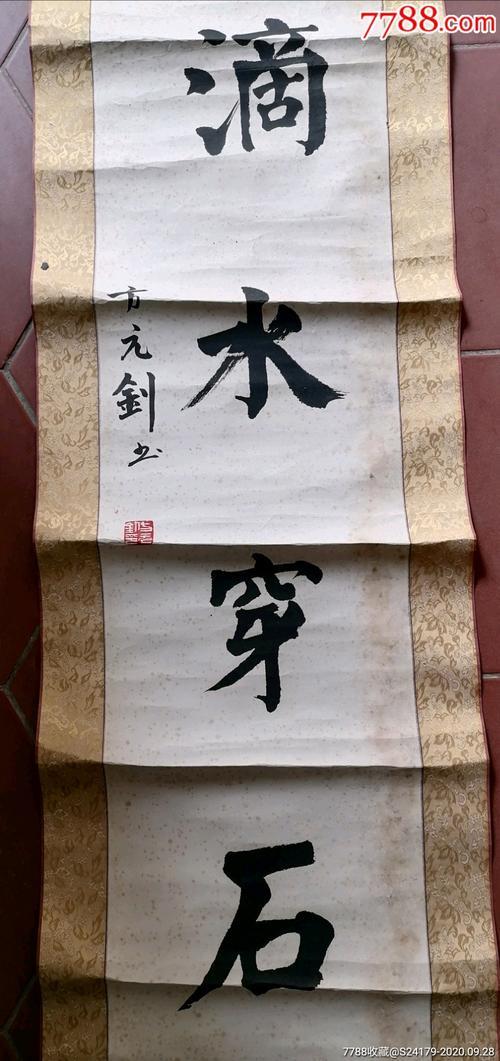 7788.com
滴水穿石
方元釗书
7788收藏@S24179-2020.09.28